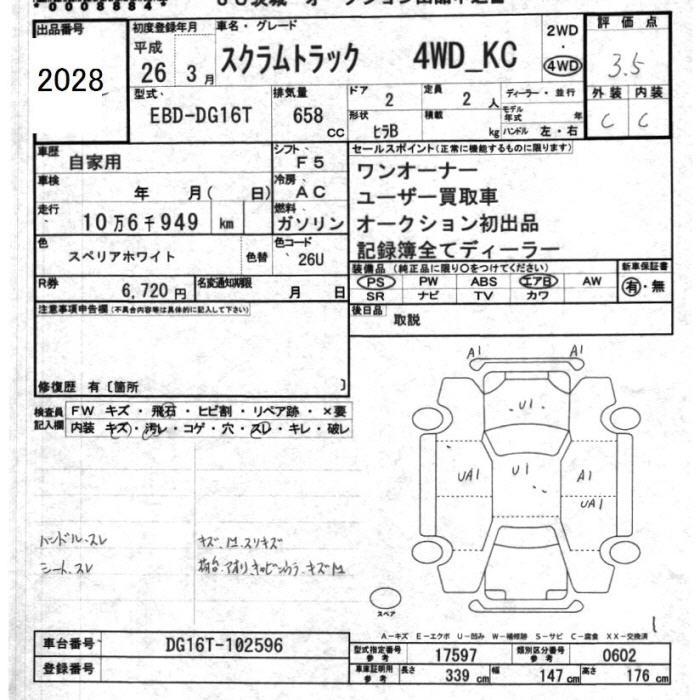 出品番号
2028
初度登録年月
平成
26 3月
車名・グレード
スクラムトラック 4WD_KC
2WD
・
4WD
評価点
3.5
外装 内装
C C
型式
EBD-DG16T
排気量
658
CC
ドア
2
定員
2 人
ディーラー・並行
形状
ヒラB
積載
kg
モデル年式 年
ハンドル 左・右
車歴
自家用
シフト
F5
車検
年 月( 日)
冷房
AC
走行
10万6千949 km
燃料
ガソリン
色
スペリアホワイト
色替
色コード
26U
R券
6,720円
名変通知期限
月 日
セールスポイント(正常に機能するものに限ります)
ワンオーナー
ユーザー買取車
オークション初出品
記録簿全てディーラー
装備品(純正品に限り○をつけてください)
PS PW ABS エアB AW
SR ナビ TV カワ
新車保証書
有・無
後日品
取説
注意事項申告欄(不具合内容等は具体的に記入して下さい)
修復歴 有〔箇所 〕
検査員記入欄
FW キズ・飛石・ヒビ割・リペア跡・×要
内装 キズ・汚レ・コゲ・穴・スレ・キレ・破レ
A1 A1
U1
UA1 U1 A1
UA1
ハンドル.スレ
シート.スレ
スペア
A-キズ E-エクボ U-凹み W-補修跡 S-サビ C-腐食 XX-交換済
車台番号
DG16T-102596
登録番号
型式指定番号
参考
17597
類別区分番号
参考
0602
車庫証明用
参考
長さ 339 cm 幅 147 cm 高さ 176 cm